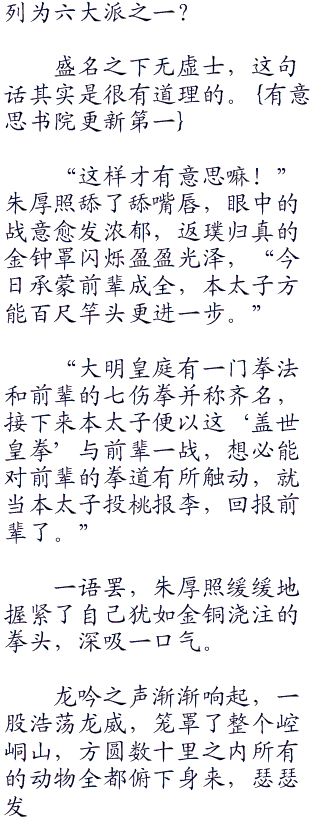 列为六大派之一？
盛名之下无虚士，这句
话其实是很有道理的。{有意
思书院更新第一}
“这样才有意思嘛！”
朱厚照舔了舔嘴唇，眼中的
战意愈发浓郁，返璞归真的
金钟罩闪烁盈盈光泽，“今
日承蒙前辈成全，本太子方
能百尺竿头更进一步。”
“大明皇庭有一门拳法
和前辈的七伤拳并称齐名，
接下来本太子便以这‘盖世
皇拳’与前辈一战，想必能
对前辈的拳道有所触动，就
当本太子投桃报李，回报前
辈了。”
一语罢，朱厚照缓缓地
握紧了自己犹如金铜浇注的
拳头，深吸一口气。
龙吟之声渐渐响起，一
股浩荡龙威，笼罩了整个崆
峒山，方圆数十里之内所有
的动物全都俯下身来，瑟瑟
发